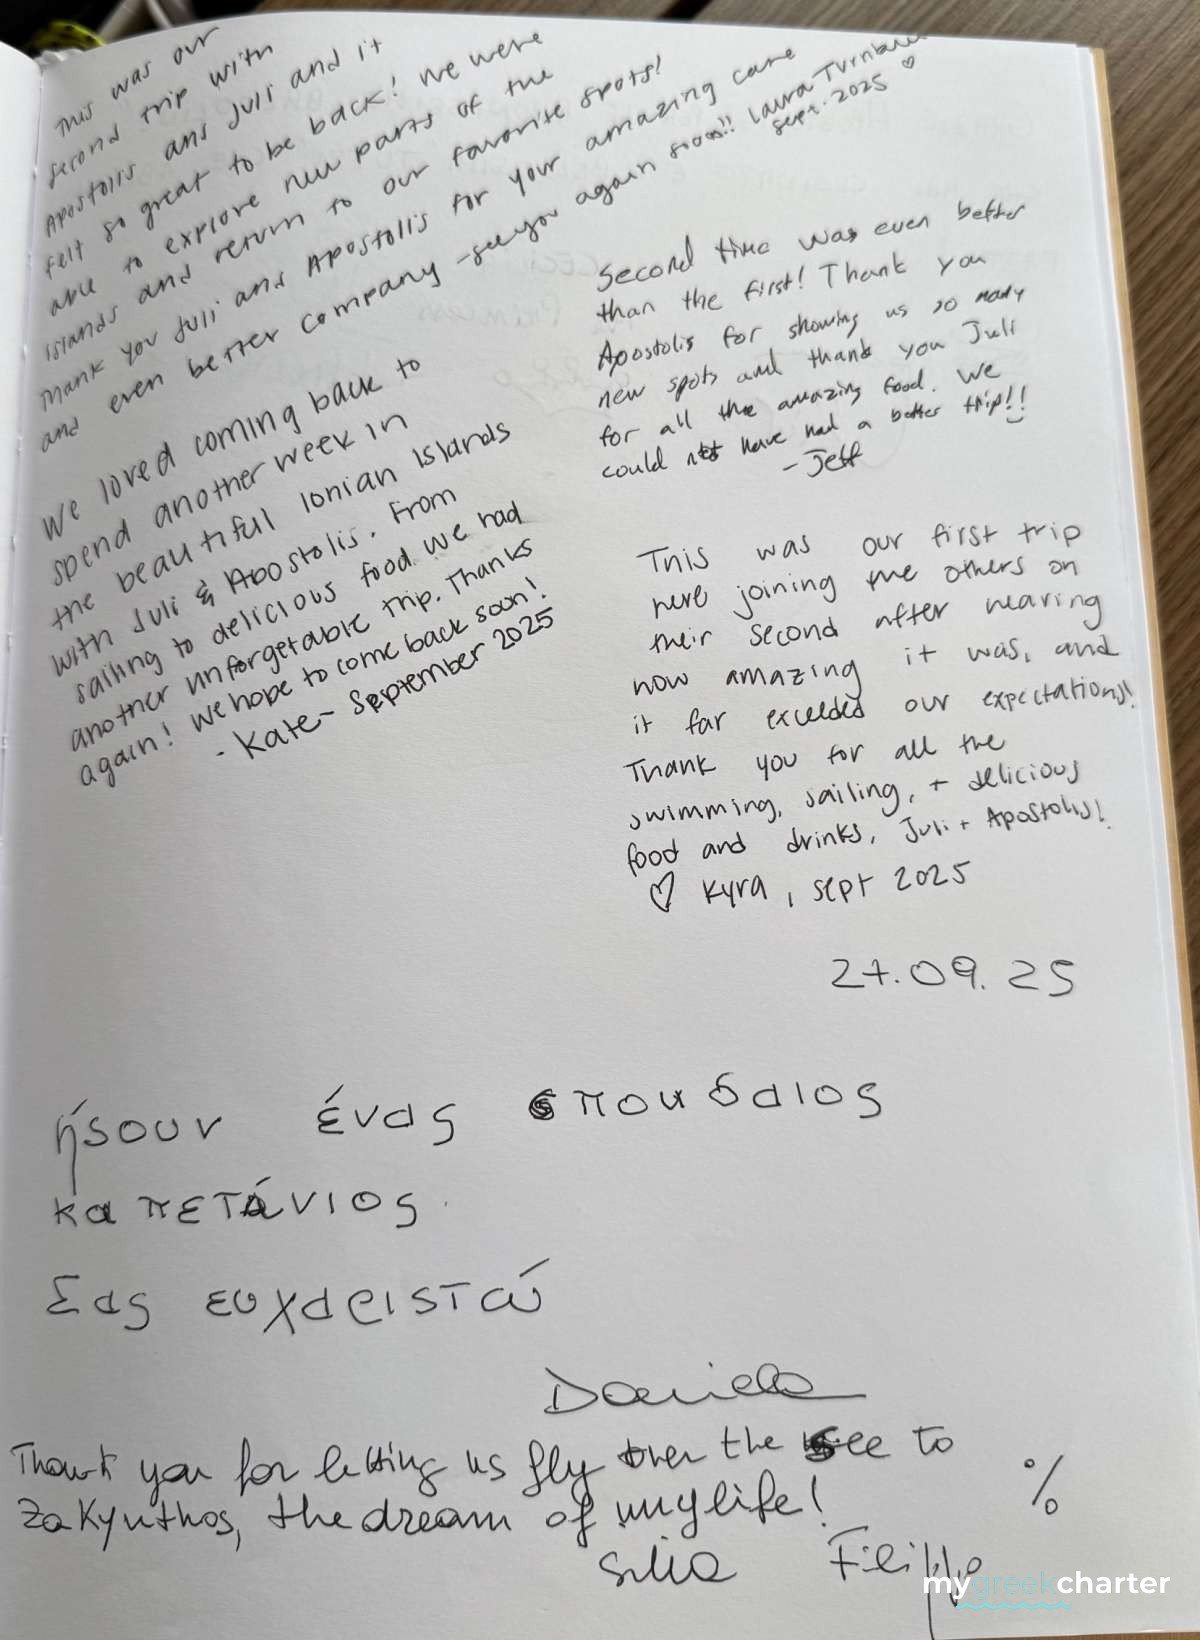 This was our
second trip with
Apostolis ans Juli and it
felt so great to be back! We were
able to explore new parts of the
islands and return to our favorite spots!
Thank you Juli and Apostolis for your amazing care
and even better company - see you again soon!! Laura
sept. 2025 ♡
We loved coming back to
spend another week in
the beautiful Ionian Islands
with Juli & Apostolis. From
sailing to delicious food we had
another unforgetable trip. Thanks
again! We hope to come back soon!
- Kate - September 2025
Second time was even better
than the first! Thank you
Apostolis for showing us so many
new spots and thank you Juli
for all the amazing food. We
could not have had a better trip!!
- Jeff
This was our first trip
here joining the others on
their second after hearing
how amazing it was, and
it far exceeded our expectations!
Thank you for all the
swimming, sailing, + delicious
food and drinks, Juli + Apostolis!
♡ Kyra, sept 2025
27.09.25
ήσουν ένας σπουδαιος
καπετάνιος
Σας ευχαριστώ
Daniela
Thank you for letting us fly over the see to
Zakynthos, the dream of my life!
Silia Filippo
%
mygreekcharter